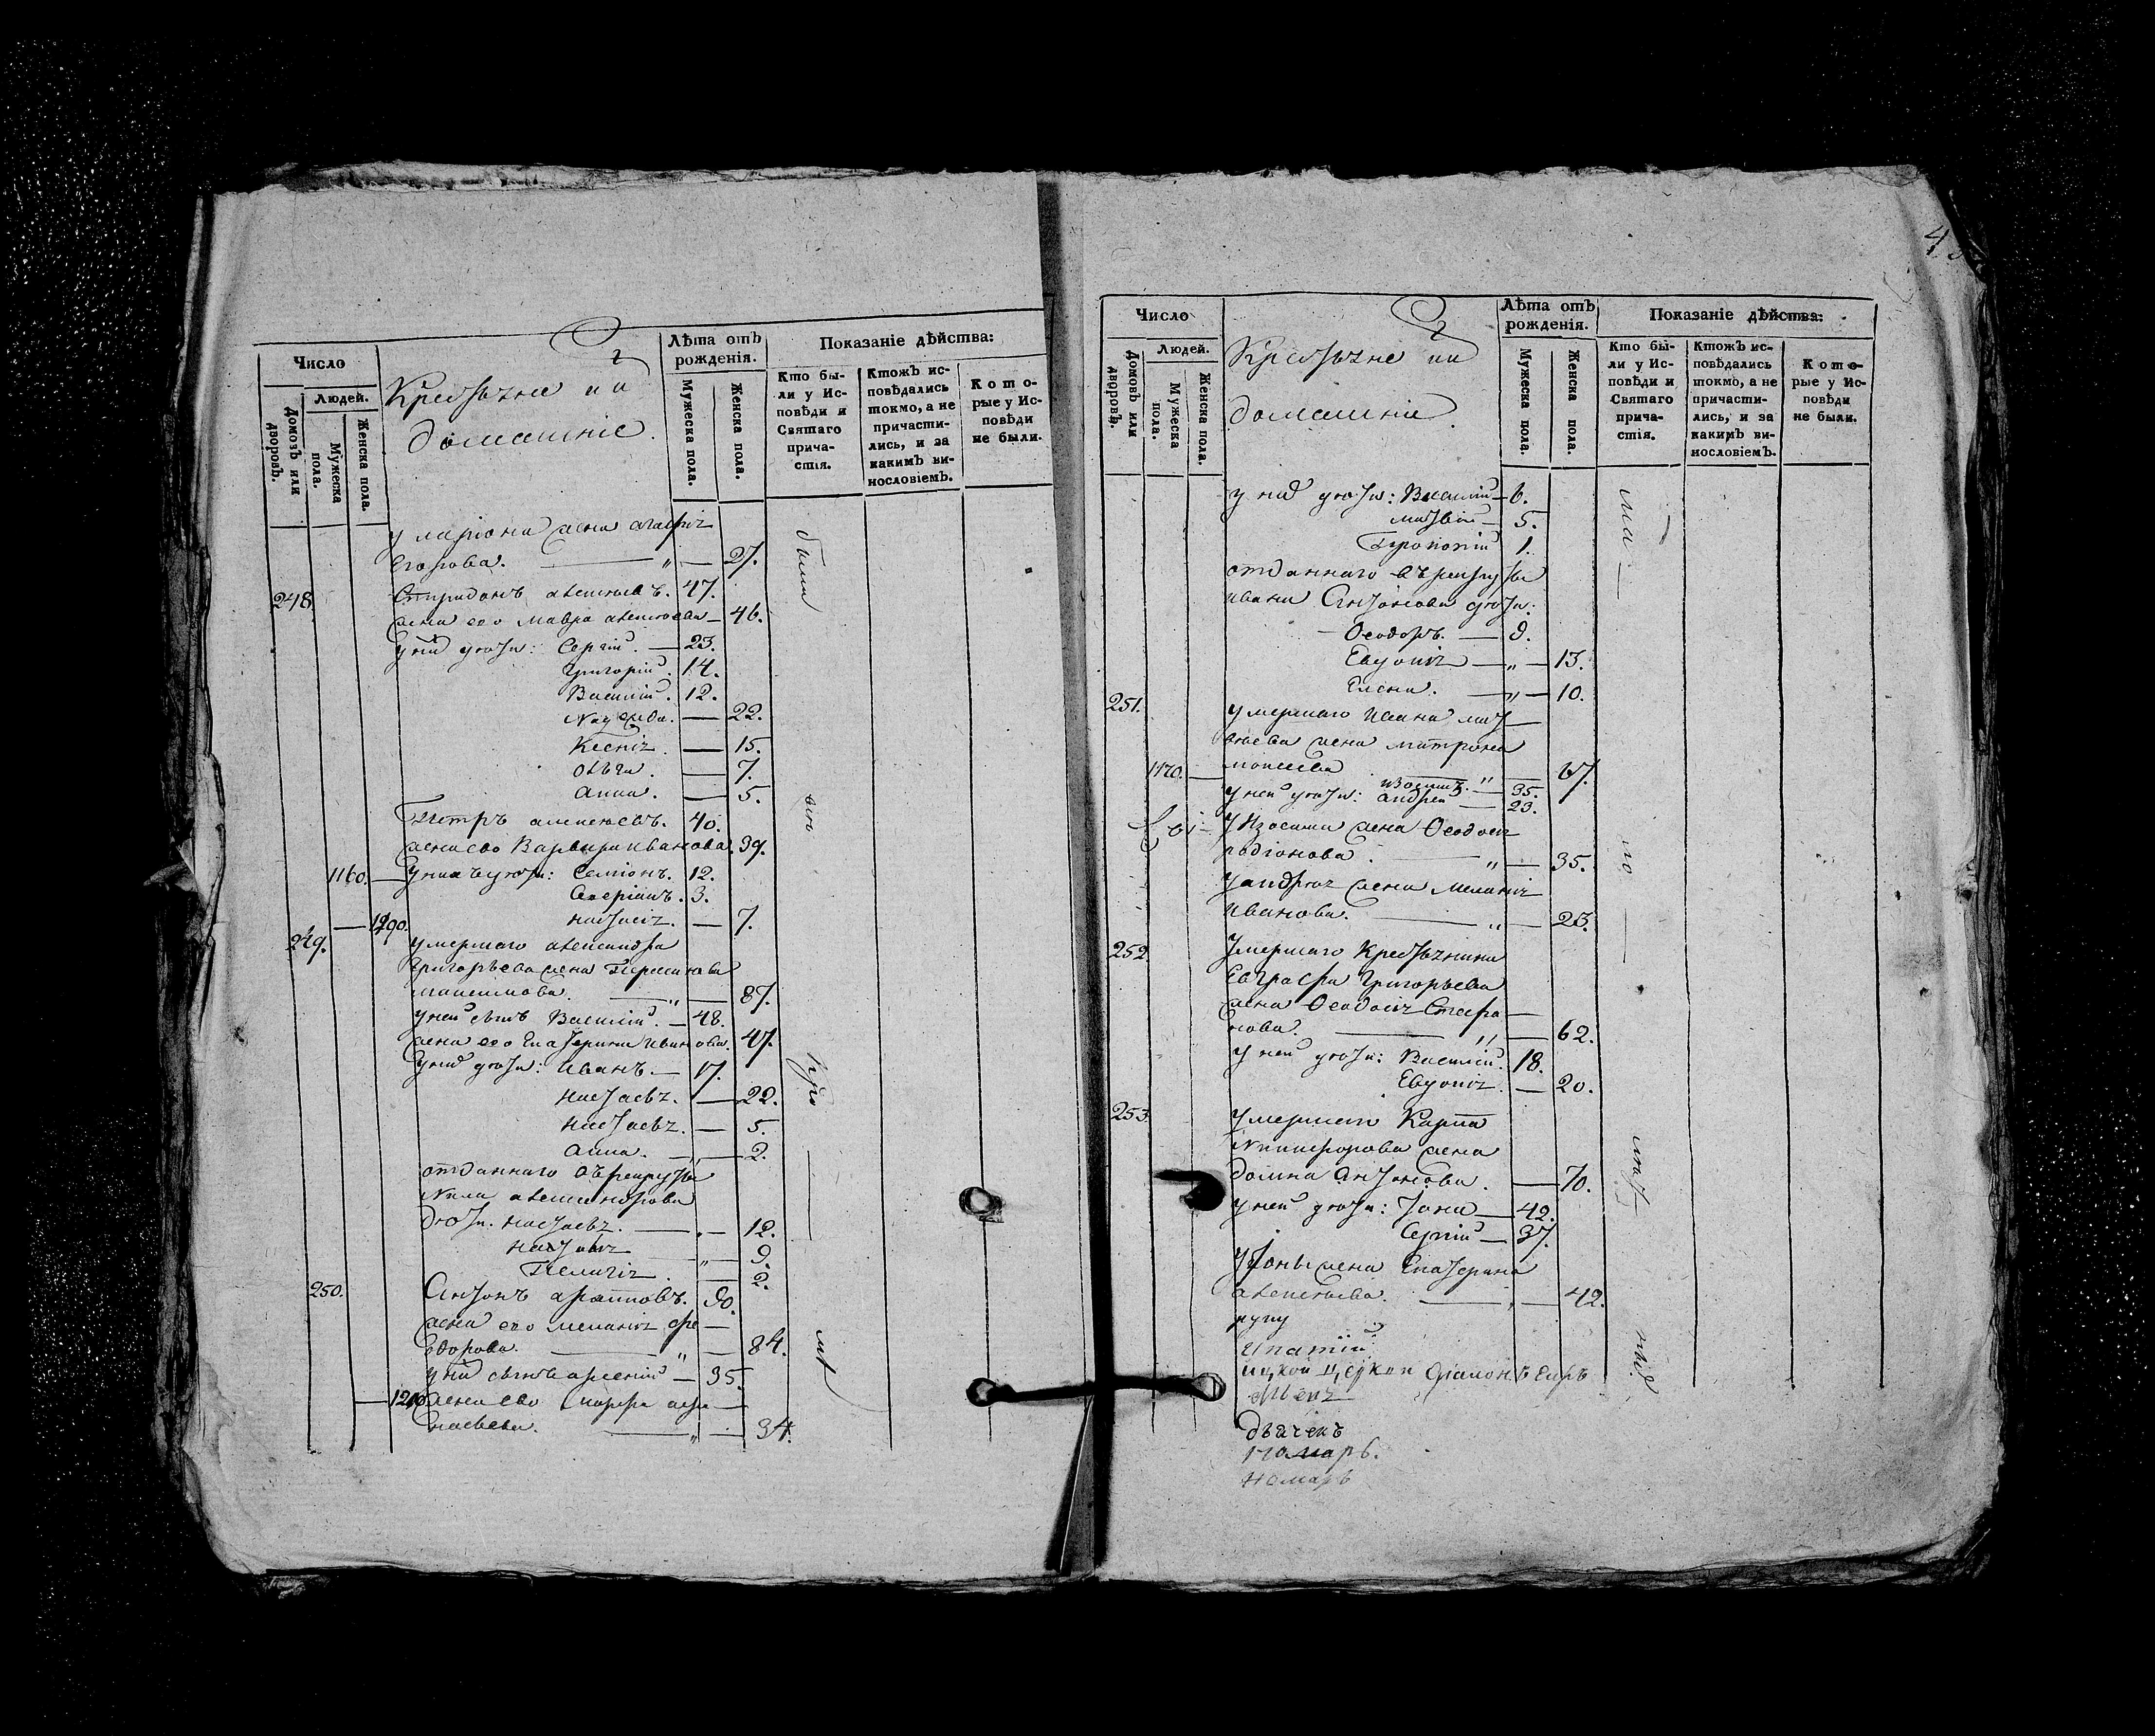 Число
Людей.
Домовъ или дворовъ.
Мужеска пола.
Женска пола.
Крестьяне и и
домашніе.
Лѣта отъ рожденія.
Мужеска пола.
Женска пола.
Показаніе дѣйства:
Кто были у Исповѣди и Святаго причастія.
Ктожъ исповѣдались токмо, а не причастились, и за какимъ винословіемъ.
Которые у Исповѣди не были.
у ларіона жена агафія
Егорова. — 27.
248 Спиридонъ алексѣевъ. 47.
жена его Мавра алексѣева — 46.
у них дѣти: Сергій. — 23.
Григорій. 14.
Василій. 12.
— 22.
Ксенія. — 15.
— 7.
Анна. — 5.
Петръ алексѣевъ. 40.
жена ево Варвара Иванова. 39.
1160. — у нихъ дѣти: Семіонъ. 12.
3.
— 1290. настасія. — 7.
249. умершаго александра
Григорьева жена
максимова. — 87.
у ней сынъ Василій. — 48.
жена его Екатерина Иванова. 47.
у них дѣти: Иванъ. — 17.
настасья. — 22.
настасья. — 5.
Анна. — 2.
отданнаго въ рекруты
дѣти. настасья. — 12.
— 9.
Пелагія. — 2.
250. Антонъ 90.
жена его меланія Фе—
дорова. — 84.
у них сынъ арсеній — 35.
жена ево марфа афа—
насьева. — 34.
были
ма
Число
Людей.
Домовъ или дворовъ.
Мужеска пола.
Женска пола.
Крестьяне и и
домашніе.
Лѣта отъ рожденія.
Мужеска пола.
Женска пола.
Показаніе дѣйства:
Кто были у Исповѣди и Святаго причастія.
Ктожъ исповѣдались токмо, а не причастились, и за какимъ винословіемъ.
Которые у Исповѣди не были.
у них дѣти: Василій — 6.
матвѣй — 5.
Прокопій 1.
отданнаго въ рекруты
Ивана Антонова дѣти:
Ѳеодоръ. — 9.
Евдокія — 13.
Елена. — 10.
251. умершаго Ивана мат—
вѣева жена матрона
1170. — моисеева — 67.
у ней дѣти: изосимъ. — 35.
андрей — 23.
у Изосима жена Ѳеодосія
родіонова. — 35.
у андрея жена Меланія
Иванова. — 23.
252 Умершаго Крестьянина
Евграфа Григорьева
жена Ѳеодосія Стефа—
нова. — 62.
у ней дѣти: Василій. 18.
Евдокія. — 20.
253. умершаго Карпа
Никифорова жена
домна Антонова. — 70.
у ней дѣти: Іона — 42.
Сергій — 37.
у Іоны жена Екатерина
алексѣева. — 42.
руку
Ипатій
дьячекъ
понамарь.